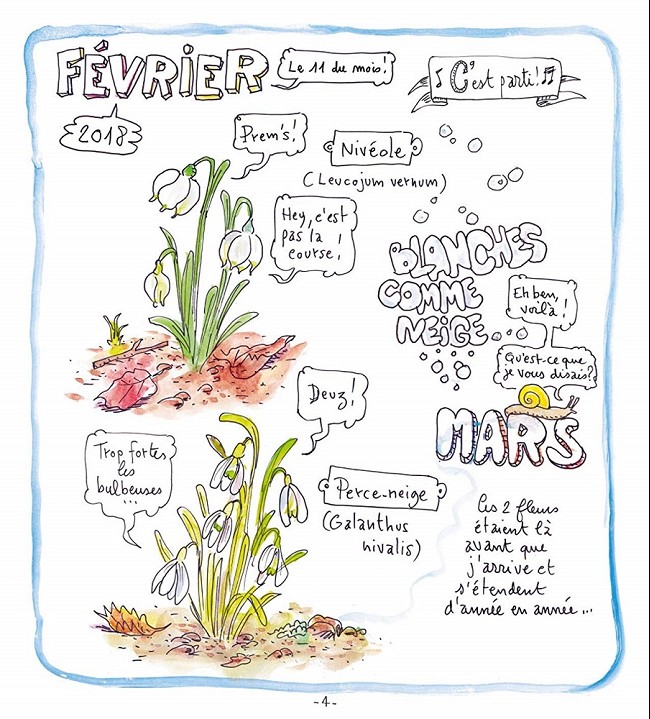 FÉVRIER
Le 11 du mois!
C'est parti!
2018
Prem's!
Nivéole
(Leucojum vernum)
Hey, c'est
pas la
course!
BLANCHES
COMME
NEIGE
Eh ben,
voilà!
Qu'est-ce que
je vous disais?
MARS
Deuz!
Trop fortes
les
bulbeuses
...
Perce-neige
(Galanthus
nivalis)
Ces 2 fleurs
étaient là
avant que
j'arrive et
s'étendent
d'année en année...
-4-